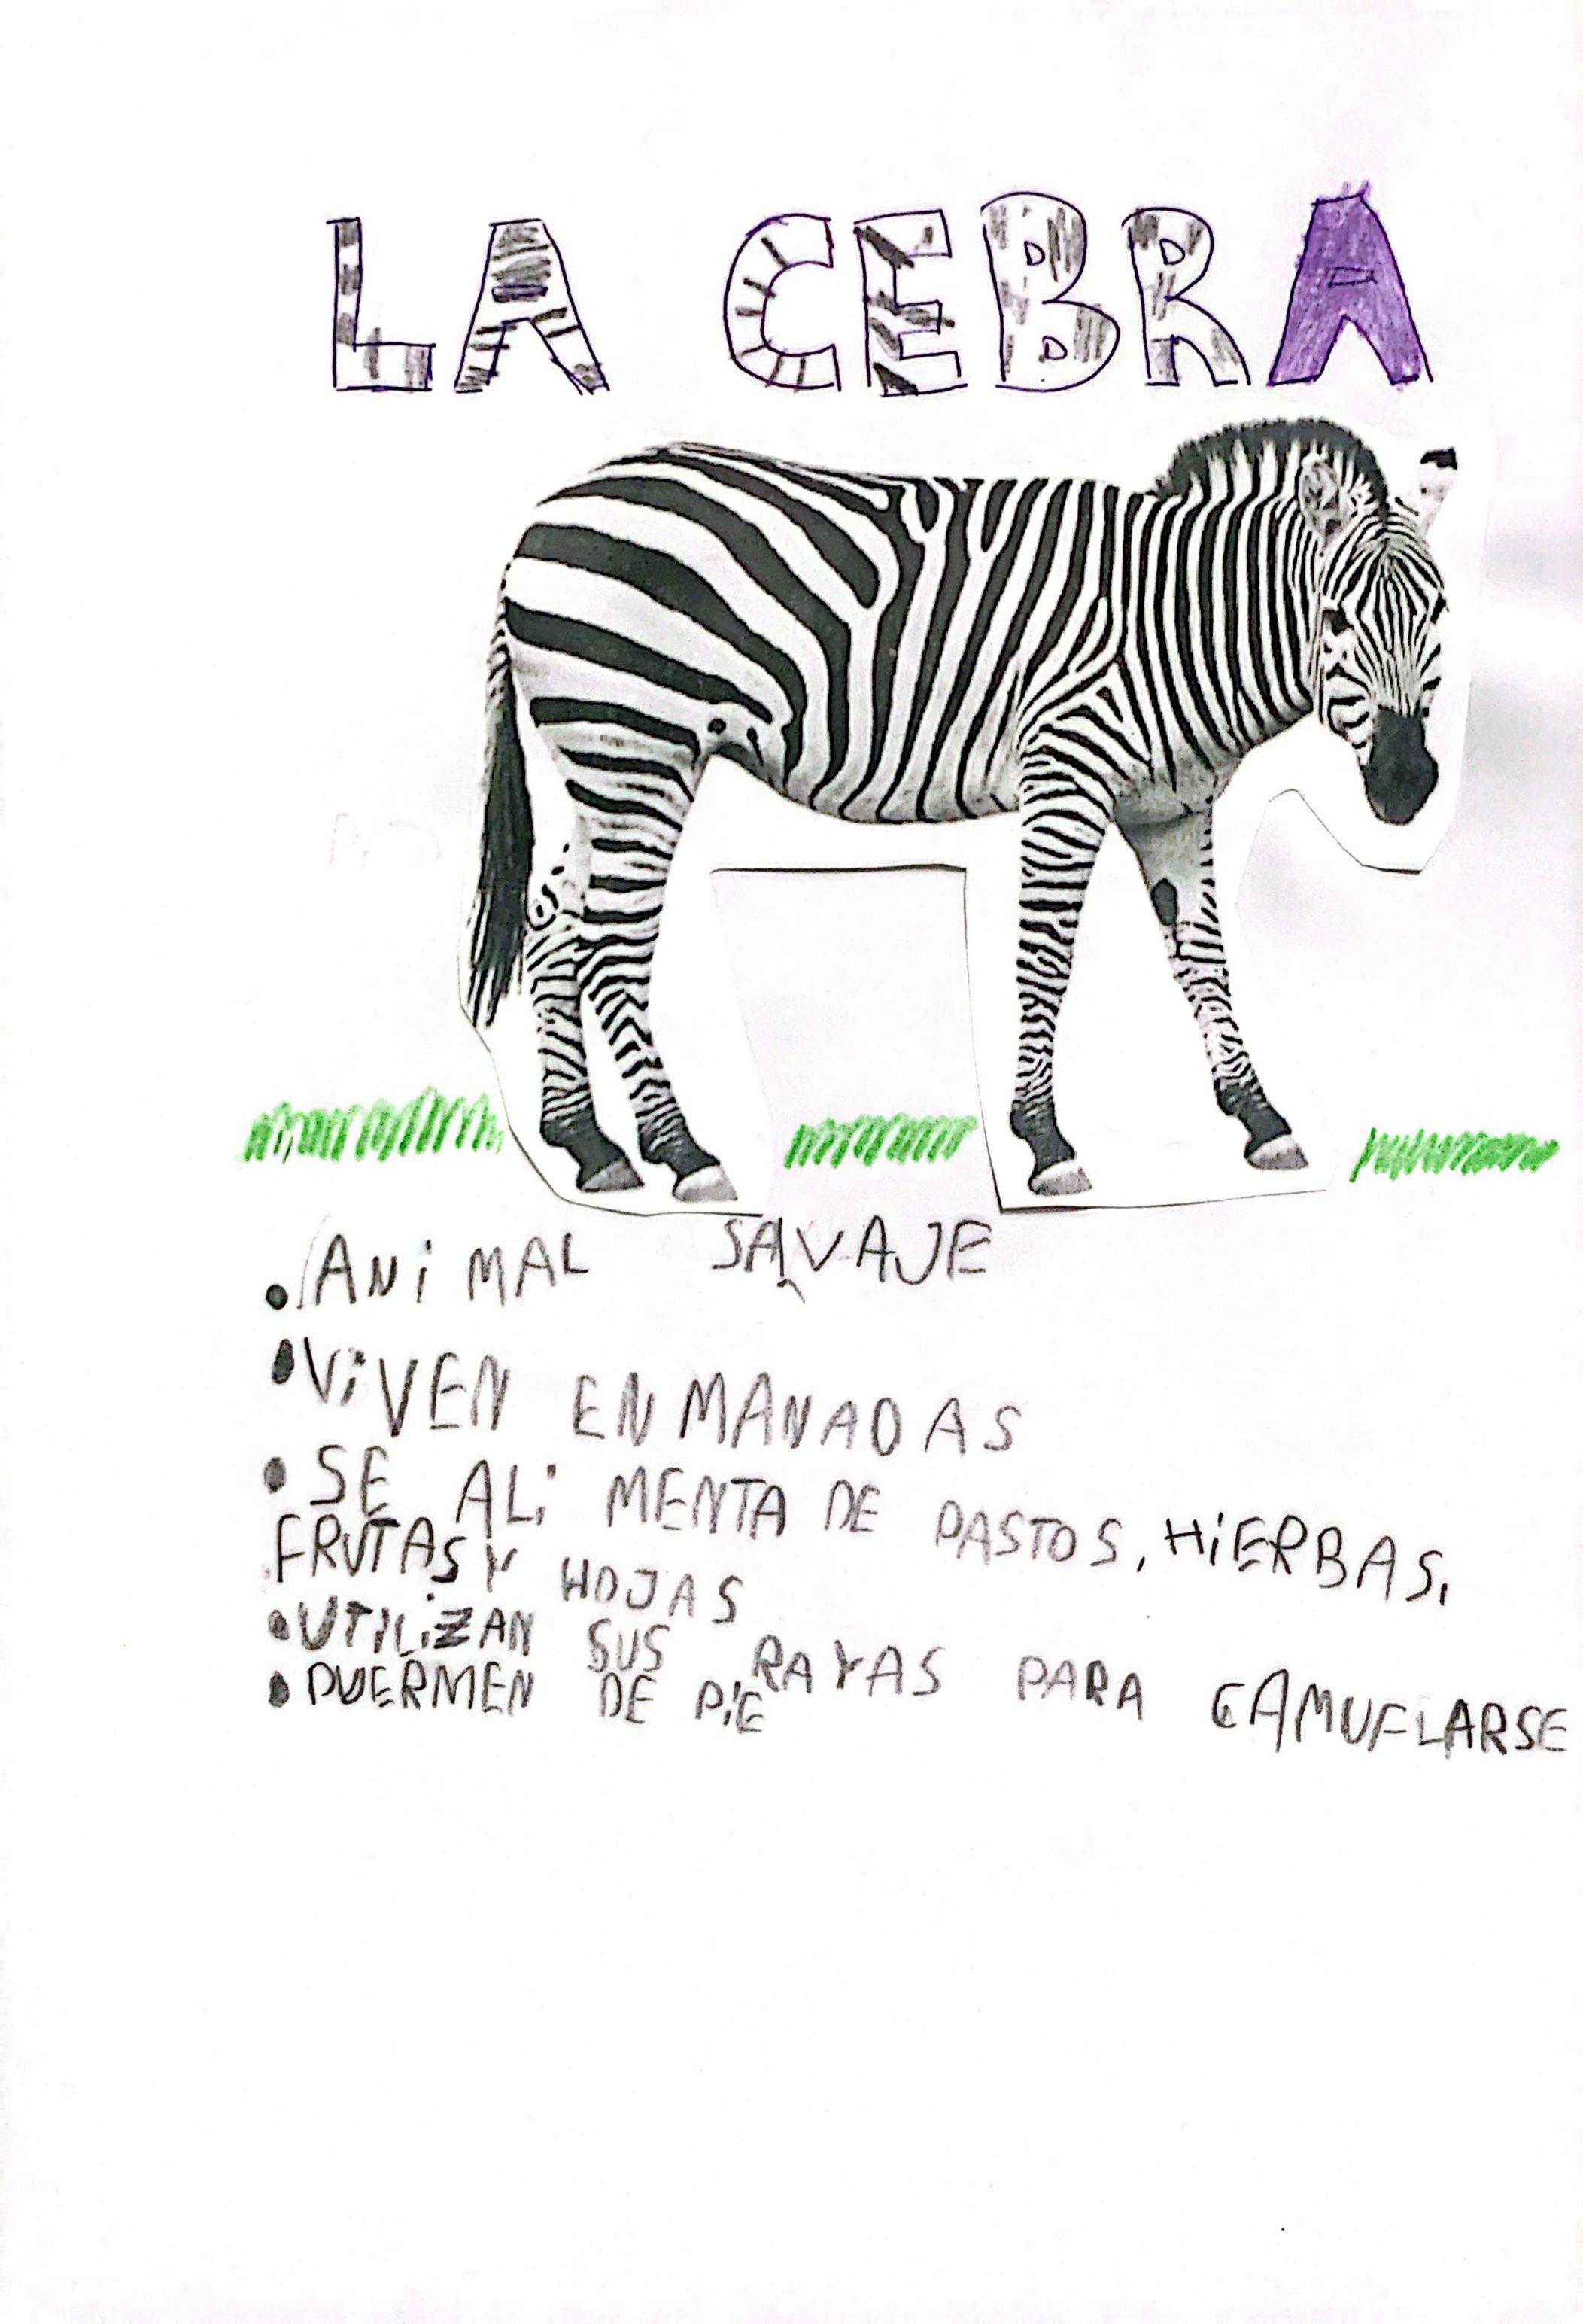 LA CEBRA
• ANiMAL SAVAJE
• ViVEN EN MANADAS
• SE ALiMENTA DE PASTOS, HiERBAS,
FRUTAS Y HOJAS
• UTiLiZAN SUS RAYAS PARA CAMUFLARSE
• DUERMEN DE PiE